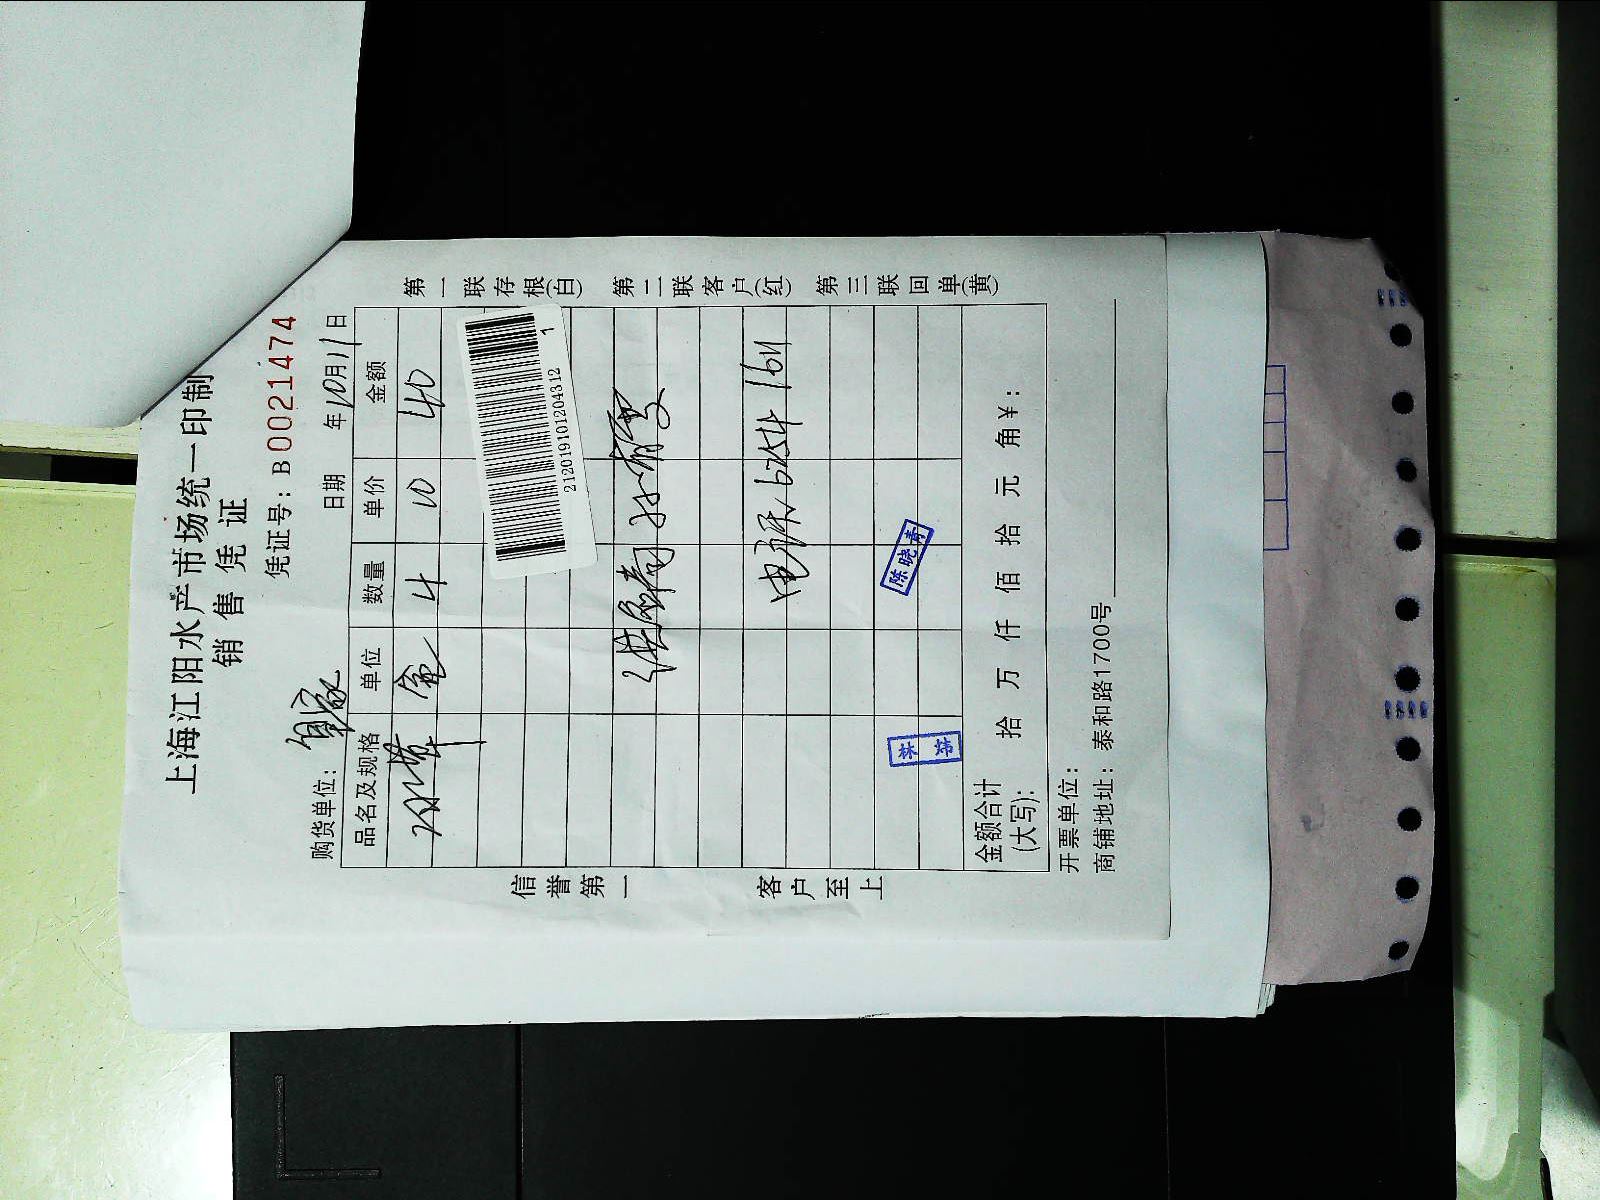 上海江阳水产市场统一印制
销售凭证
凭证号：B0021474
购货单位： 日期 年10月11日
品名及规格 单位 数量 单价 金额
盒 4 10 40
212019101204312 1
电话 6254 1611
陈晓青
林炜
金额合计(大写)： 拾 万 仟 佰 拾 元 角 ¥：
开票单位：
商铺地址：泰和路1700号
信誉第一 客户至上
第一联存根(白) 第二联客户(红) 第三联回单(黄)